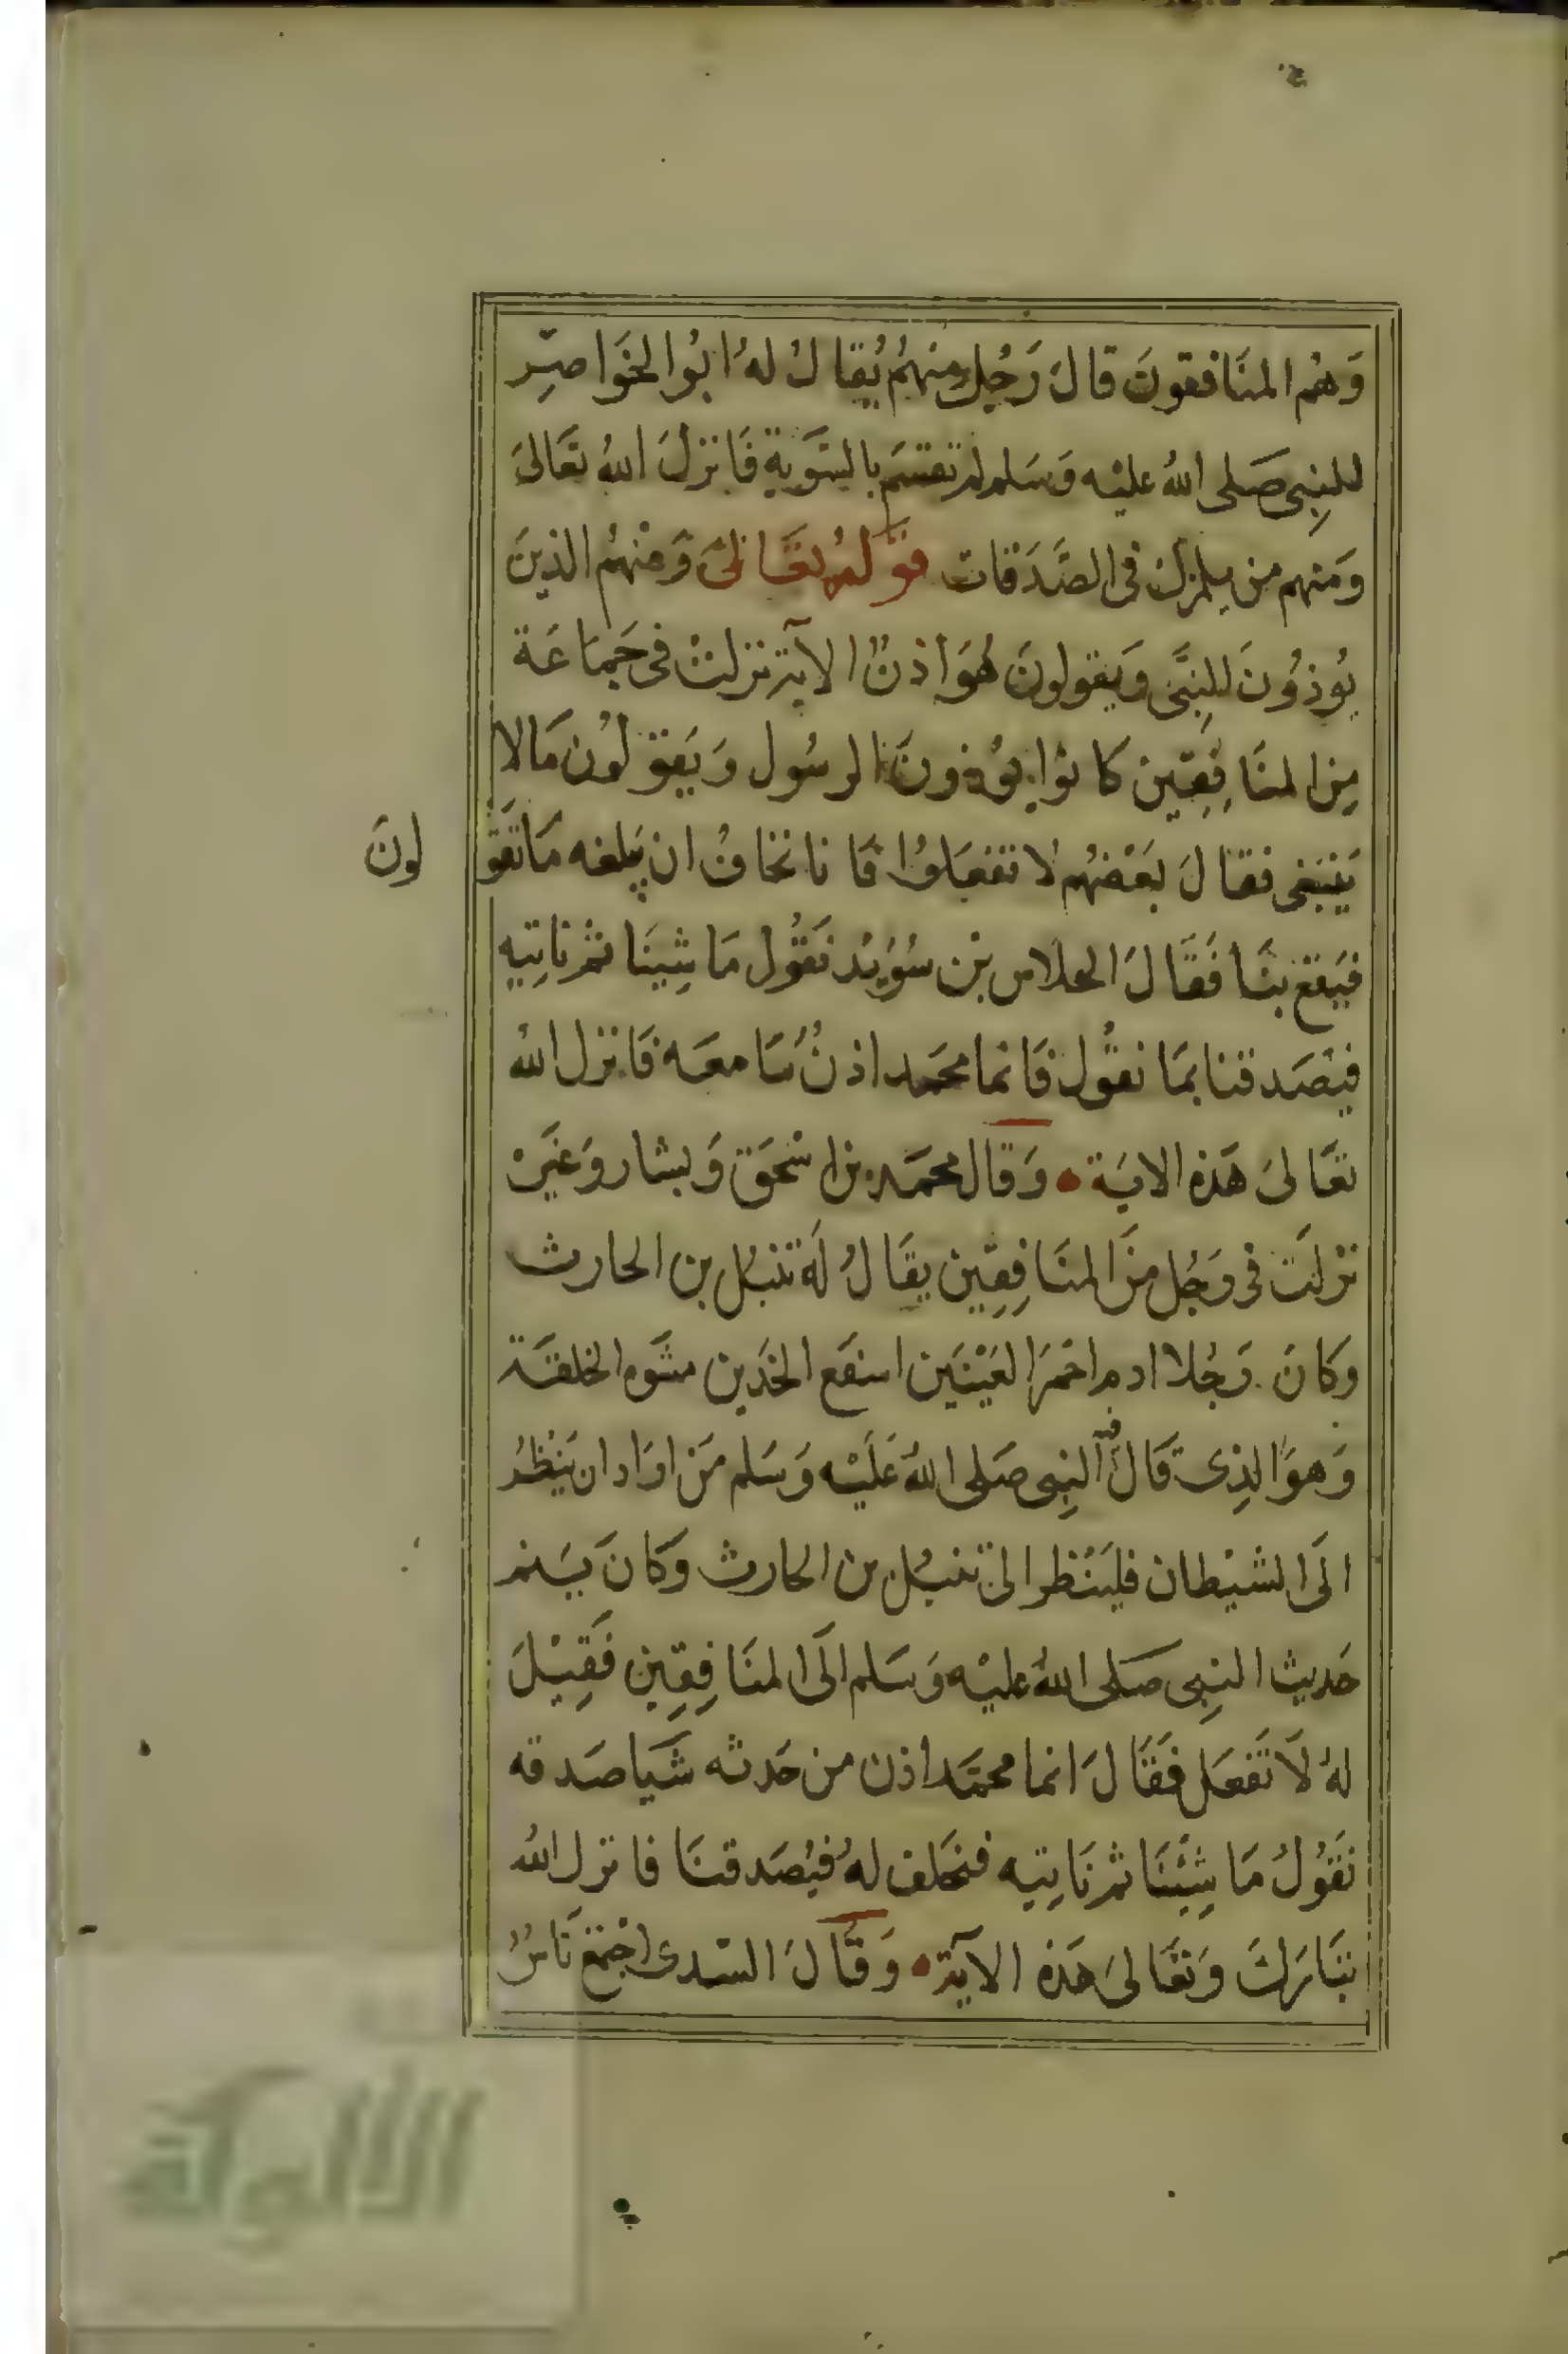 وَهُم المنَافقونَ قالَ رَجُل منهُم يُقالُ لهُ ابُوا الخَواصِر
للنبِى صَلى اللهُ عليْه وَسَلم لم تقسَم بالسَّوَيةِ فَانزلَ اللهُ تعَالىَ
وَمنهم من يلمزكَ فى الصَّدَقات قوَلهُ تعَالىَ وَمنْهُم الذينَ
يُوذوُنَ النبِىَّ وَيقولونَ هُوَ اذنٌ الآية نزلتْ فى جَماعَة
مِن المنَافِقِين كانوُا يوُذونَ الرسُول وَيَقولوُن مَا لا
يَنبَغى فقالَ بَعْضهُم لا تفعَلوُا فَانا نخافُ ان يَبلغه مَا تَقولونَ
فيَقع بنَا فَقَالَ الجلاس بْن سُوَيْد نَقُول مَا شِينَا ثمْ نَاتِيه
فيْصَدقنا بمَا نقُول فَانما محَمد اذنُ سَامعَه فَانزل اللهُ
تعَالىَ هَذه الايَة ٠ وَقال محمَد بن اسْحَق وَبشار وَغيَرْ
نزلَتَ فى رَجُل منَ المنَافِقِين يقَالُ لَهُ نَبْتُل بن الحارث
وَكانَ رَجُلا ادم احْمَرَ العَيْنَين اسفَع الخدَين مشَوه الخلقَة
وَهوَ الذِى قَالَ فيه النبِى صَلى اللهُ عَلَيْه وَسَلم مَن ارَاد ان يَنْظُر
الَى الشيْطان فليَنْظر الىَ نَبتُل بن الحارث وَكانَ يَنم
حَديث النبِى صَلى اللهُ عليْه وَسَلم الَى المنَافِقِين فَقِيْلَ
لهُ لاَ تَفعَل فَقَالَ انما محمَد اذن من حَدثه شَيَا صَدقه
نَقوُلُ مَا شِئْنَا ثم نَاتِيه فنحَلف لهُ فيُصَدقنَا فانزل اللهُ
تبَارَكَ وَتعَالىَ هَذه الآية ٠ وَقَالَ السّدى اجْتمَع نَاسُ
الألوكة